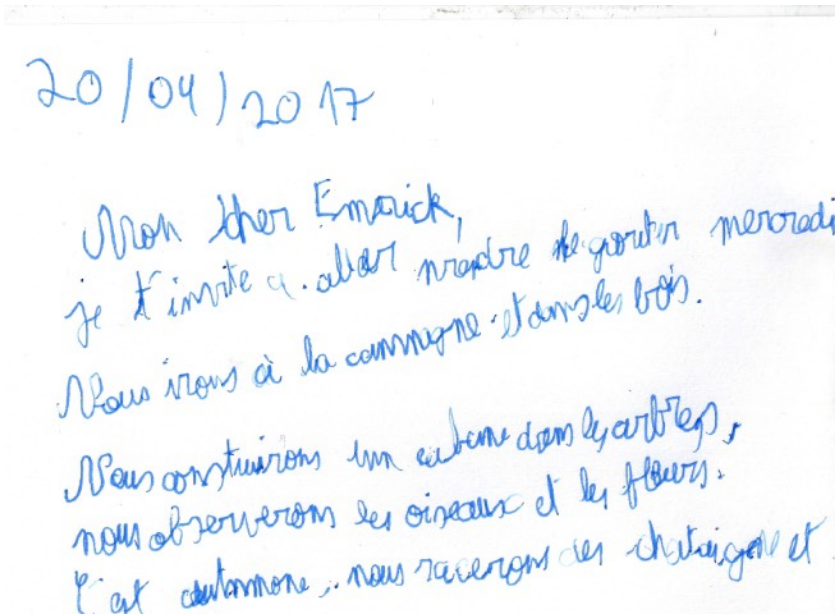 20/04/2017
Mon cher Emarick,
je t'invite a aller prendre le gouter mercredi
Nous irons à la campagne et dans les bois.
Nous construirons un cabane dans les arbres,
nous observerons les oiseaux et les fleurs.
C'est autonmone, nous des chataigne et